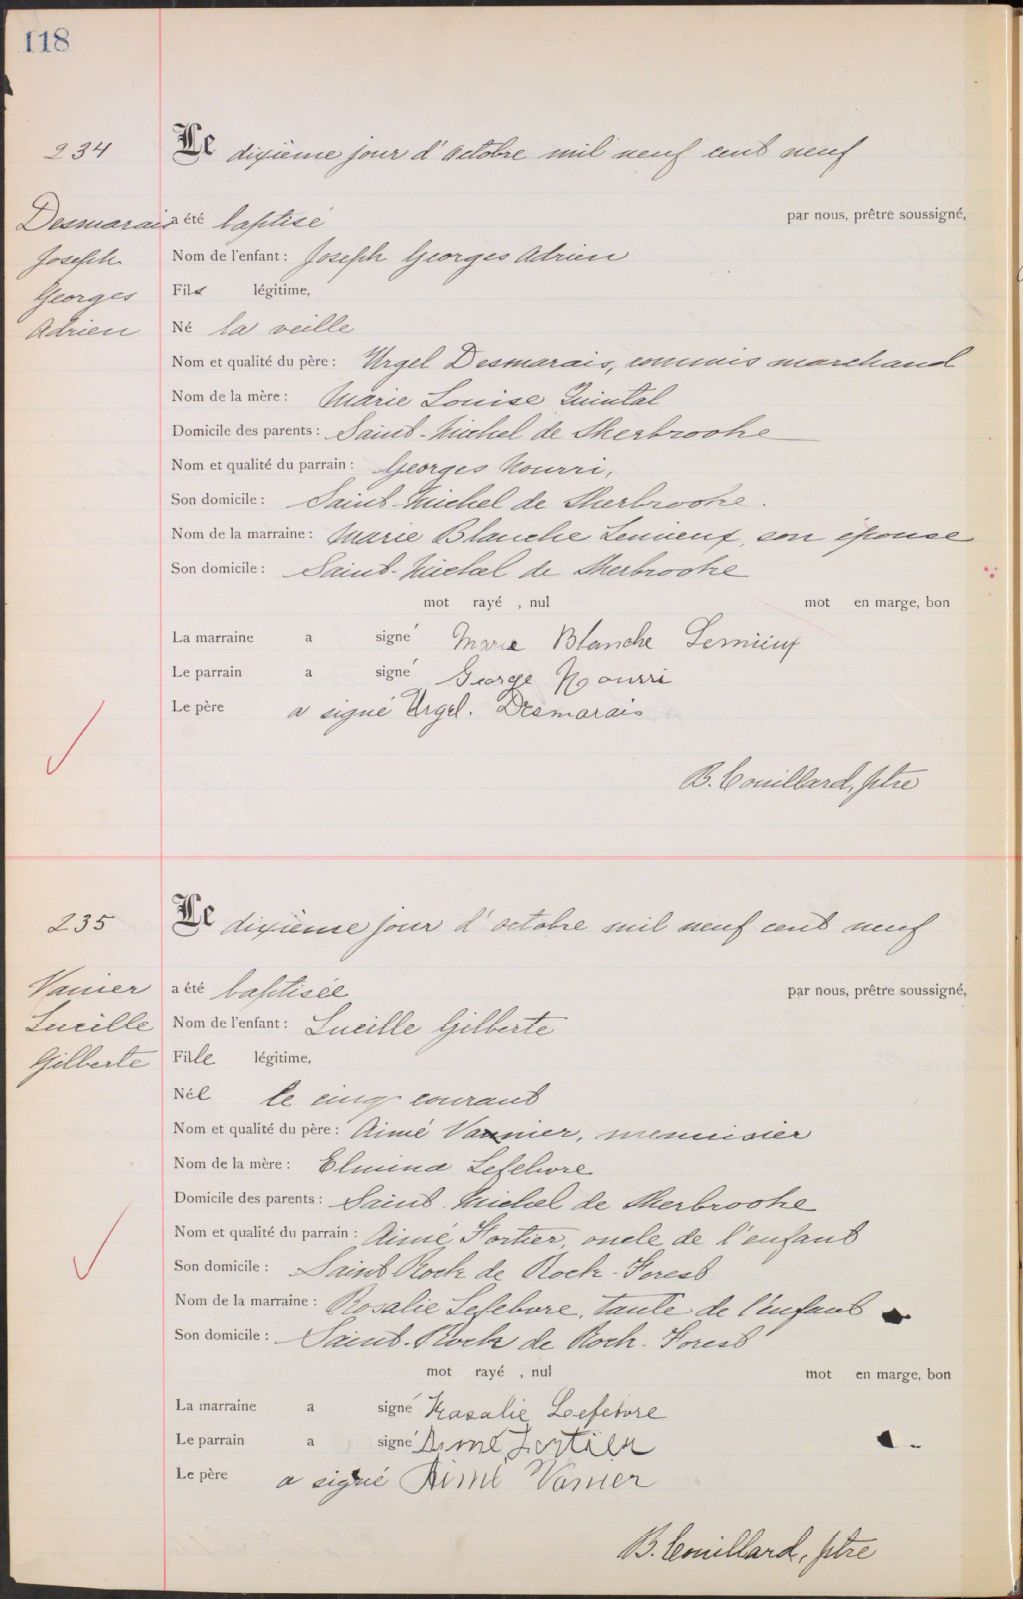 118
234
Le dixième jour d'octobre mil neuf cent neuf
Desmarais
Joseph
Georges
Adrien
a été baptisé par nous, prêtre soussigné,
Nom de l'enfant : Joseph Georges Adrien
Fils légitime,
Né la veille
Nom et qualité du père : Urgel Desmarais, commis marchand
Nom de la mère : Marie Louise Quintal
Domicile des parents : Saint-Michel de Sherbrooke
Nom et qualité du parrain : Georges Nourri,
Son domicile : Saint-Michel de Sherbrooke.
Nom de la marraine : Marie Blanche Lemieux, son épouse
Son domicile : Saint-Michel de Sherbrooke
mot rayé , nul mot en marge, bon
La marraine a signé Marie Blanche Lemieux
Le parrain a signé George Nourri
Le père a signé Urgel. Desmarais
B. Couillard, ptre
235
Le dixième jour d'octobre mil neuf cent neuf
Vanier
Lucille
Gilberte
a été baptisée par nous, prêtre soussigné,
Nom de l'enfant : Lucille Gilberte
Fille légitime,
Née le cinq courant
Nom et qualité du père : Aimé Vannier, menuisier
Nom de la mère : Elmina Lefebvre
Domicile des parents : Saint-Michel de Sherbrooke
Nom et qualité du parrain : Aimé Fortier, oncle de l'enfant
Son domicile : Saint Roch de Rock-Forest
Nom de la marraine : Rosalie Lefebvre, tante de l'enfant
Son domicile : Saint-Roch de Rock-Forest
mot rayé , nul mot en marge, bon
La marraine a signé Rosalie Lefebvre
Le parrain a signé Aimé Fortier
Le père a signé Aimé Vanier
B. Couillard, ptre